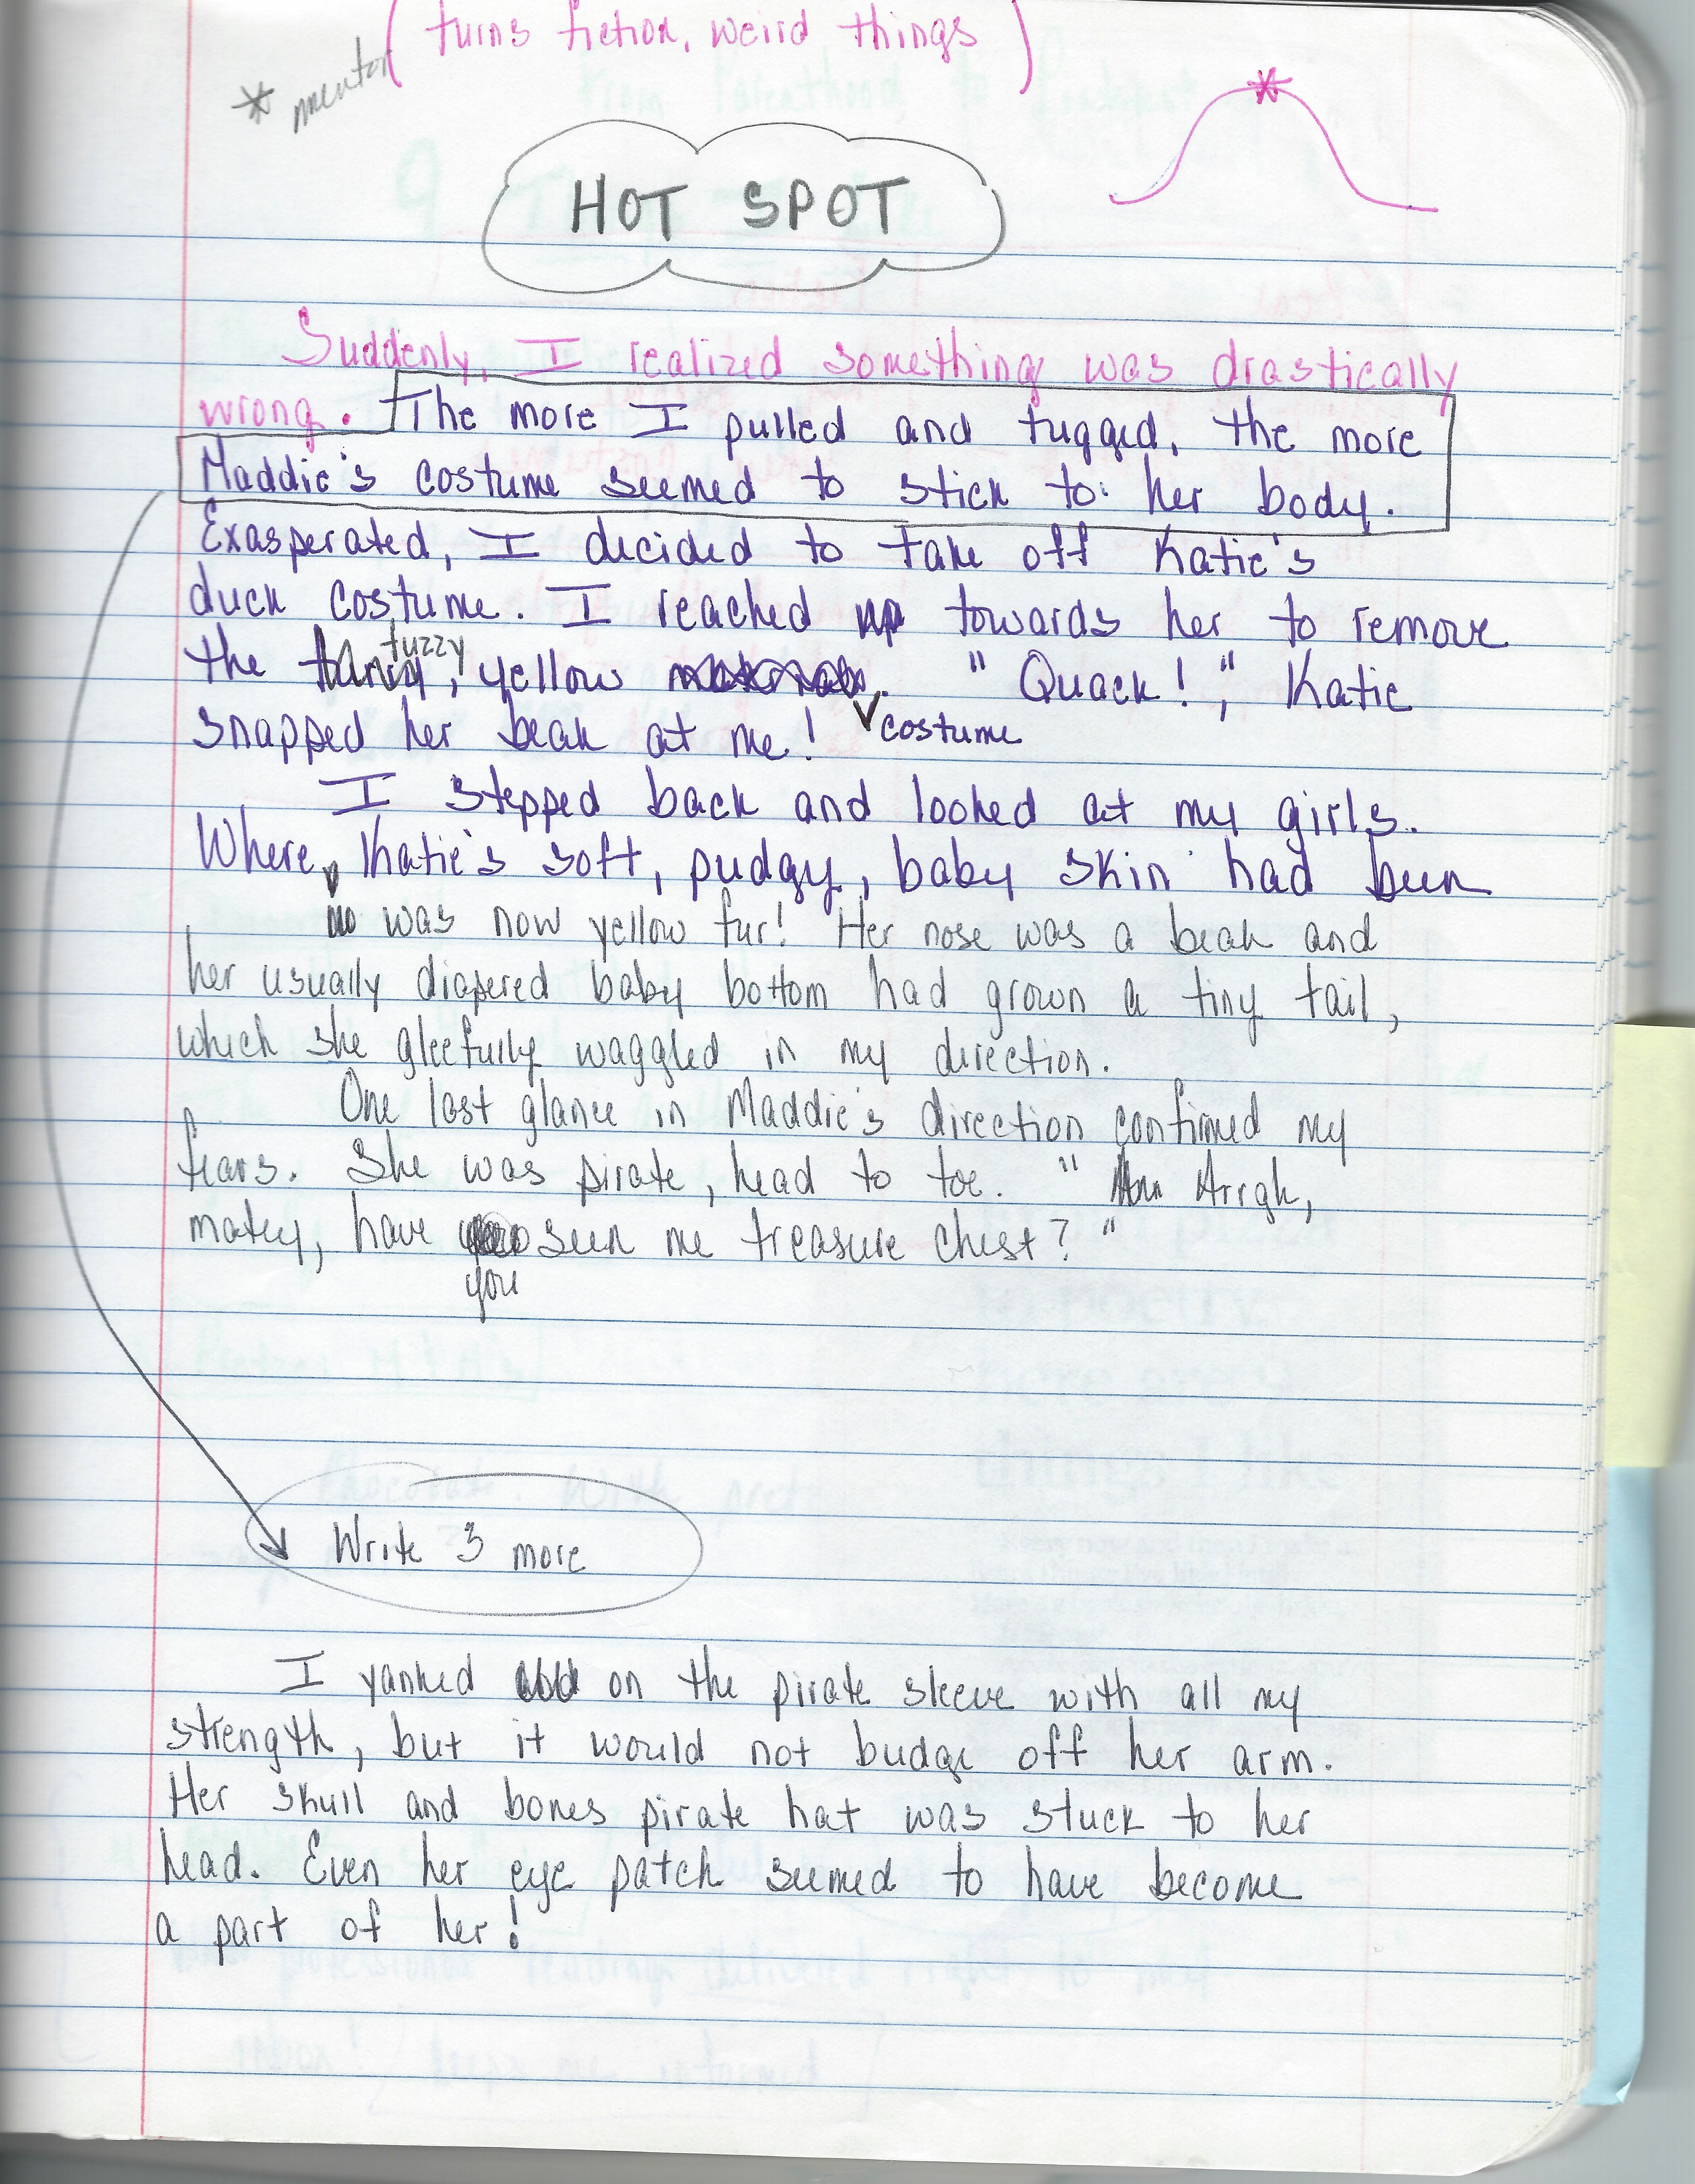 ( turns fiction, weird things )
* mentor
HOT SPOT
Suddenly, I realized something was drastically
wrong. The more I pulled and tugged, the more
Maddie's costume seemed to stick to her body.
Exasperated, I decided to take off Katie's
duck costume. I reached up towards her to remove
fuzzy
the yellow . "Quack!", Katie
snapped her beak at me! costume
I stepped back and looked at my girls.
Where Katie's soft, pudgy, baby skin had been
was now yellow fur! Her nose was a beak and
her usually diapered baby bottom had grown a tiny tail,
which she gleefully waggled in my direction.
One last glance in Maddie's direction confirmed my
fears. She was pirate, head to toe. " Arrgh,
matey, have seen me treasure chest?"
you
Write 3 more
I yanked on the pirate sleeve with all my
strength, but it would not budge off her arm.
Her skull and bones pirate hat was stuck to her
head. Even her eye patch seemed to have become
a part of her!